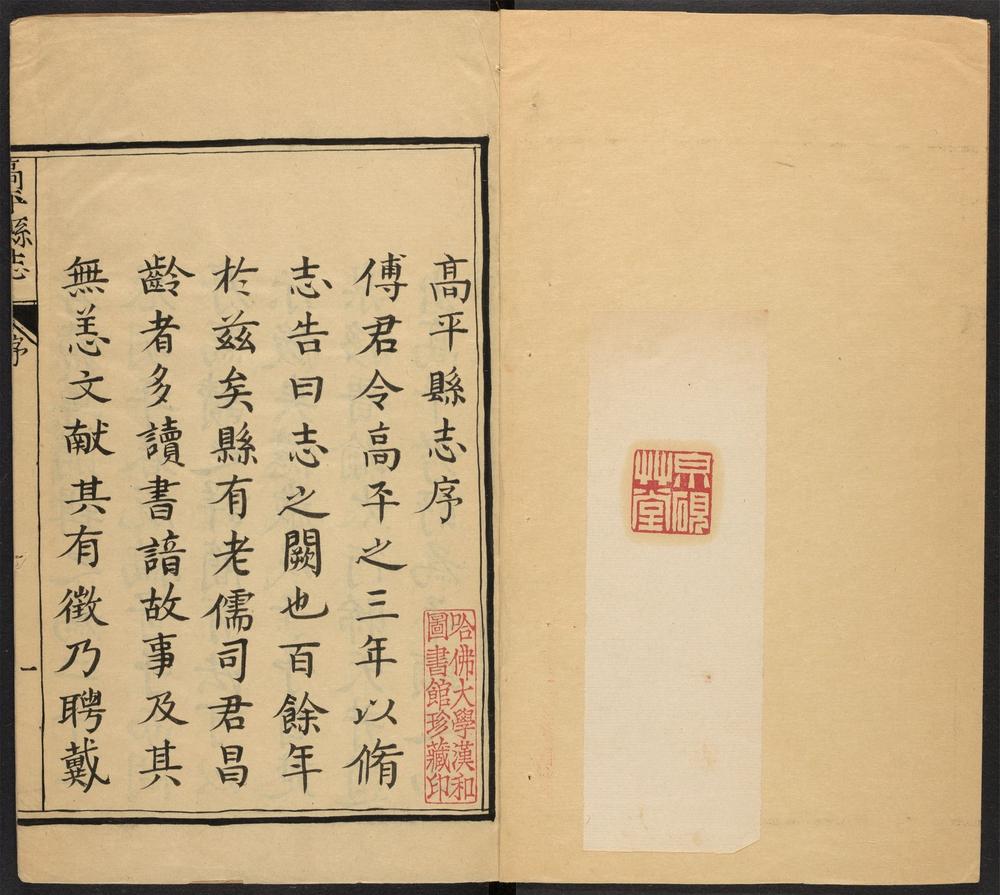 硯
艸堂
高平縣志序
哈佛大學漢和
圖書館珍藏印
傅君令高平之三年以脩
志告曰志之闕也百餘年
於兹矣縣有老儒司君昌
齡者多讀書諳故事及其
無恙文献其有徵乃聘戴
高平縣志 序 一